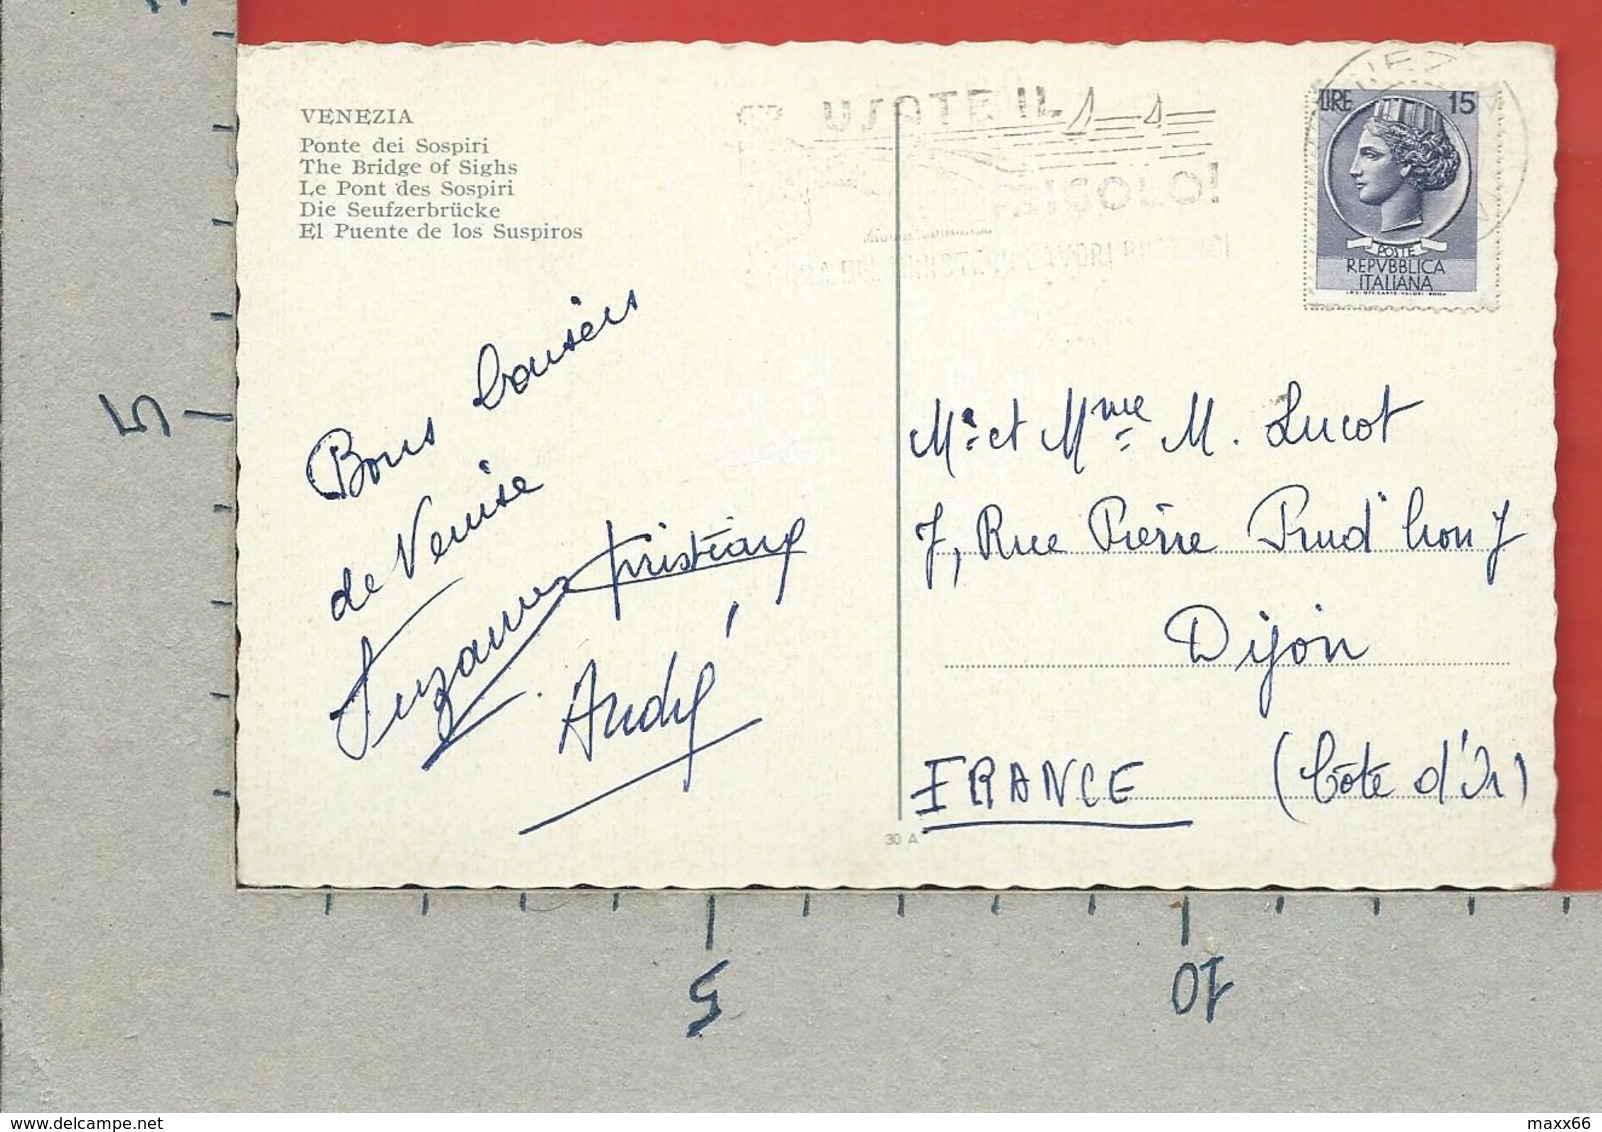 VENEZIA
Ponte dei Sospiri
The Bridge of Sighs
Le Pont des Sospiri
Die Seufzerbrücke
El Puente de los Suspiros
Bons baisers
de Venise
Suzanne Christiane
André
USATE IL
LIRE 15
POSTE
REPVBBLICA
ITALIANA
Mr. et Mme M. Lucot
7, Rue Pierre Prud'hon
Dijon
FRANCE (Côte d'Or)
30 A
5
5
10
maxx66